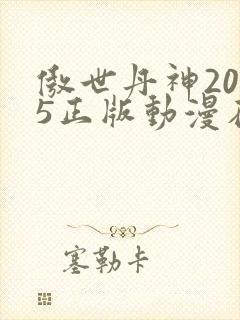 傲世丹神20
5正版動漫在
塞勒卡